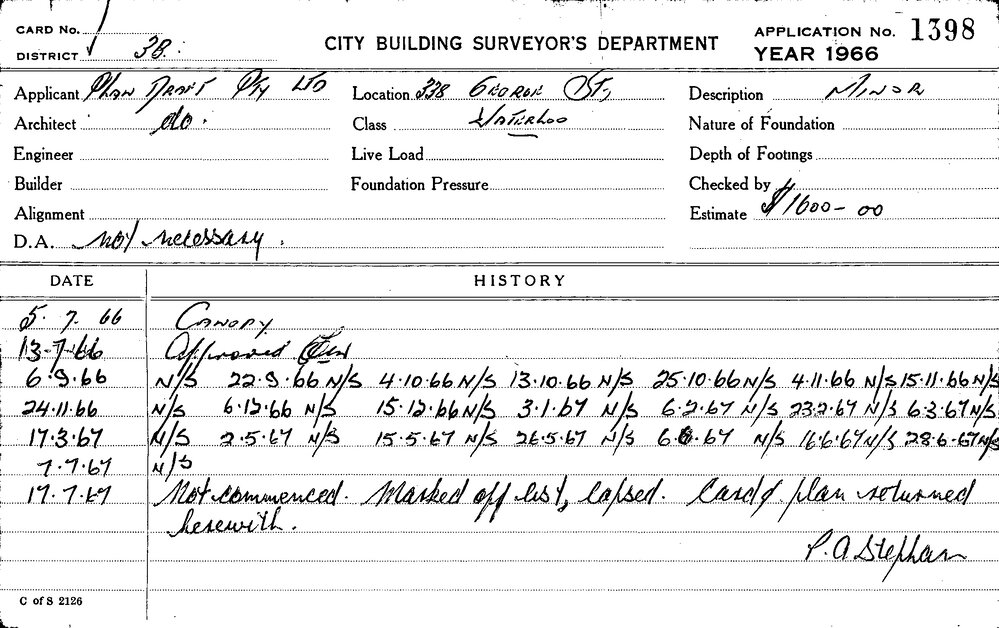 CARD No.
DISTRICT 3B.
CITY BUILDING SURVEYOR'S DEPARTMENT
APPLICATION No. 1398
YEAR 1966
Applicant Plan Draft Pty Ltd
Location 338 George St,
Description Minor
Architect do.
Class Waterloo
Nature of Foundation
Engineer
Live Load
Depth of Footings
Builder
Foundation Pressure
Checked by
Alignment
Estimate $1600-00
D.A. not necessary.
DATE HISTORY
5. 7. 66 Canopy
13-7-66 Approved
6.9.66 N/S 22.9.66 N/S 4.10.66 N/S 13.10.66 N/S 25.10.66 N/S 4.11.66 N/S 15.11.66 N/S
24.11.66 N/S 6.12.66 N/S 15.12.66 N/S 3.1.67 N/S 6.2.67 N/S 23.2.67 N/S 6.3.67 N/S
17.3.67 N/S 2.5.67 N/S 15.5.67 N/S 26.5.67 N/S 6.6.67 N/S 16.6.67 N/S 28.6.67 N/S
7.7.67 N/S
17.7.67 Not commenced. Marked off list, lapsed. Card & plan returned
herewith.
P. A Stephan
C of S 2126